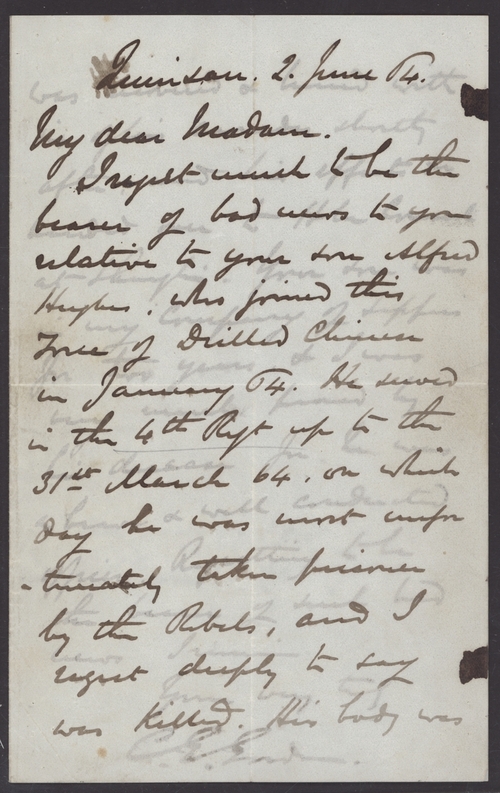 Quinsan. 2. June 64.
My dear Madam.
I regret much to be the
bearer of bad news to you
relative to your son Alfred
Hughes, who joined this
Force of Drilled Chinese
in January 64. He served
in the 4th Regt up to the
31st March 64, on which
day he was most unfor
-tunately taken prisoner
by the Rebels, and I
regret deeply to say
was killed. His body was